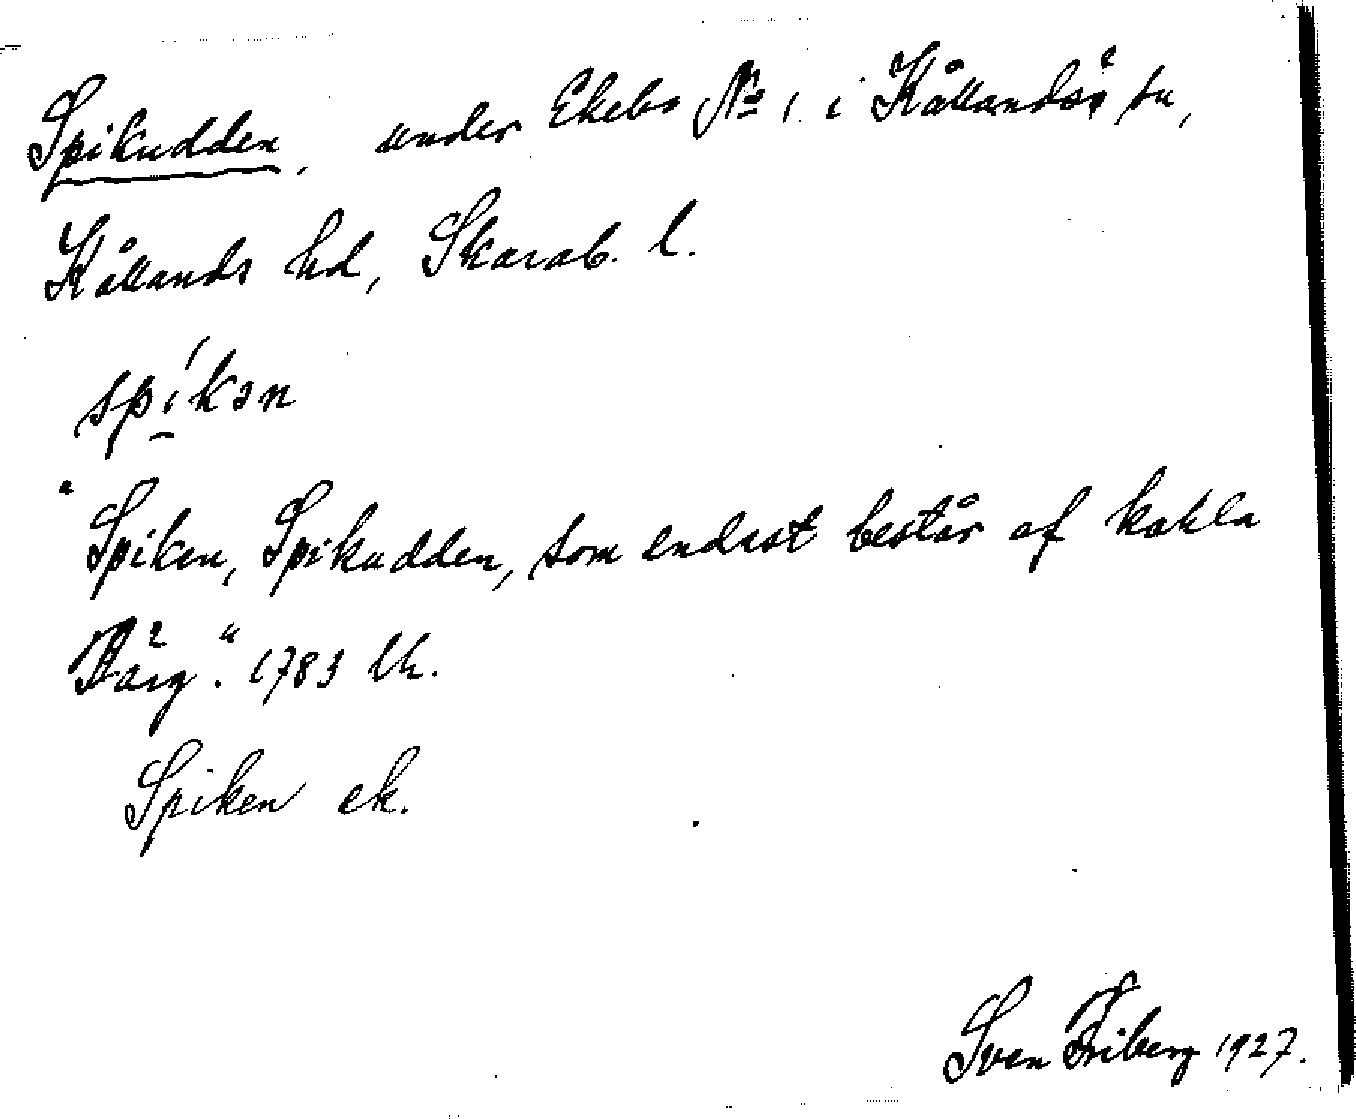 Spikudden, under Ekebo No 1. i Kållandsö sn,
Kållands hd, Skarab. l.
spíkən
"Spiken, Spikudden, som endast består af kahla
Bärg". 1783 Uk.
Spiken ek.
Sven Friberg 1927.